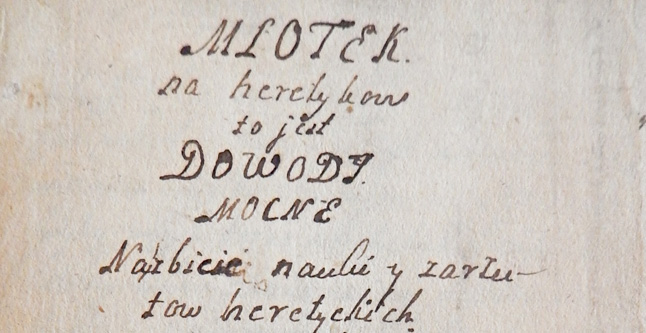 MLOTEK.
na heretykow
to jest
DOWODY
MOCNE
Nazbicie nauki y zarzu-
tow heretyckich